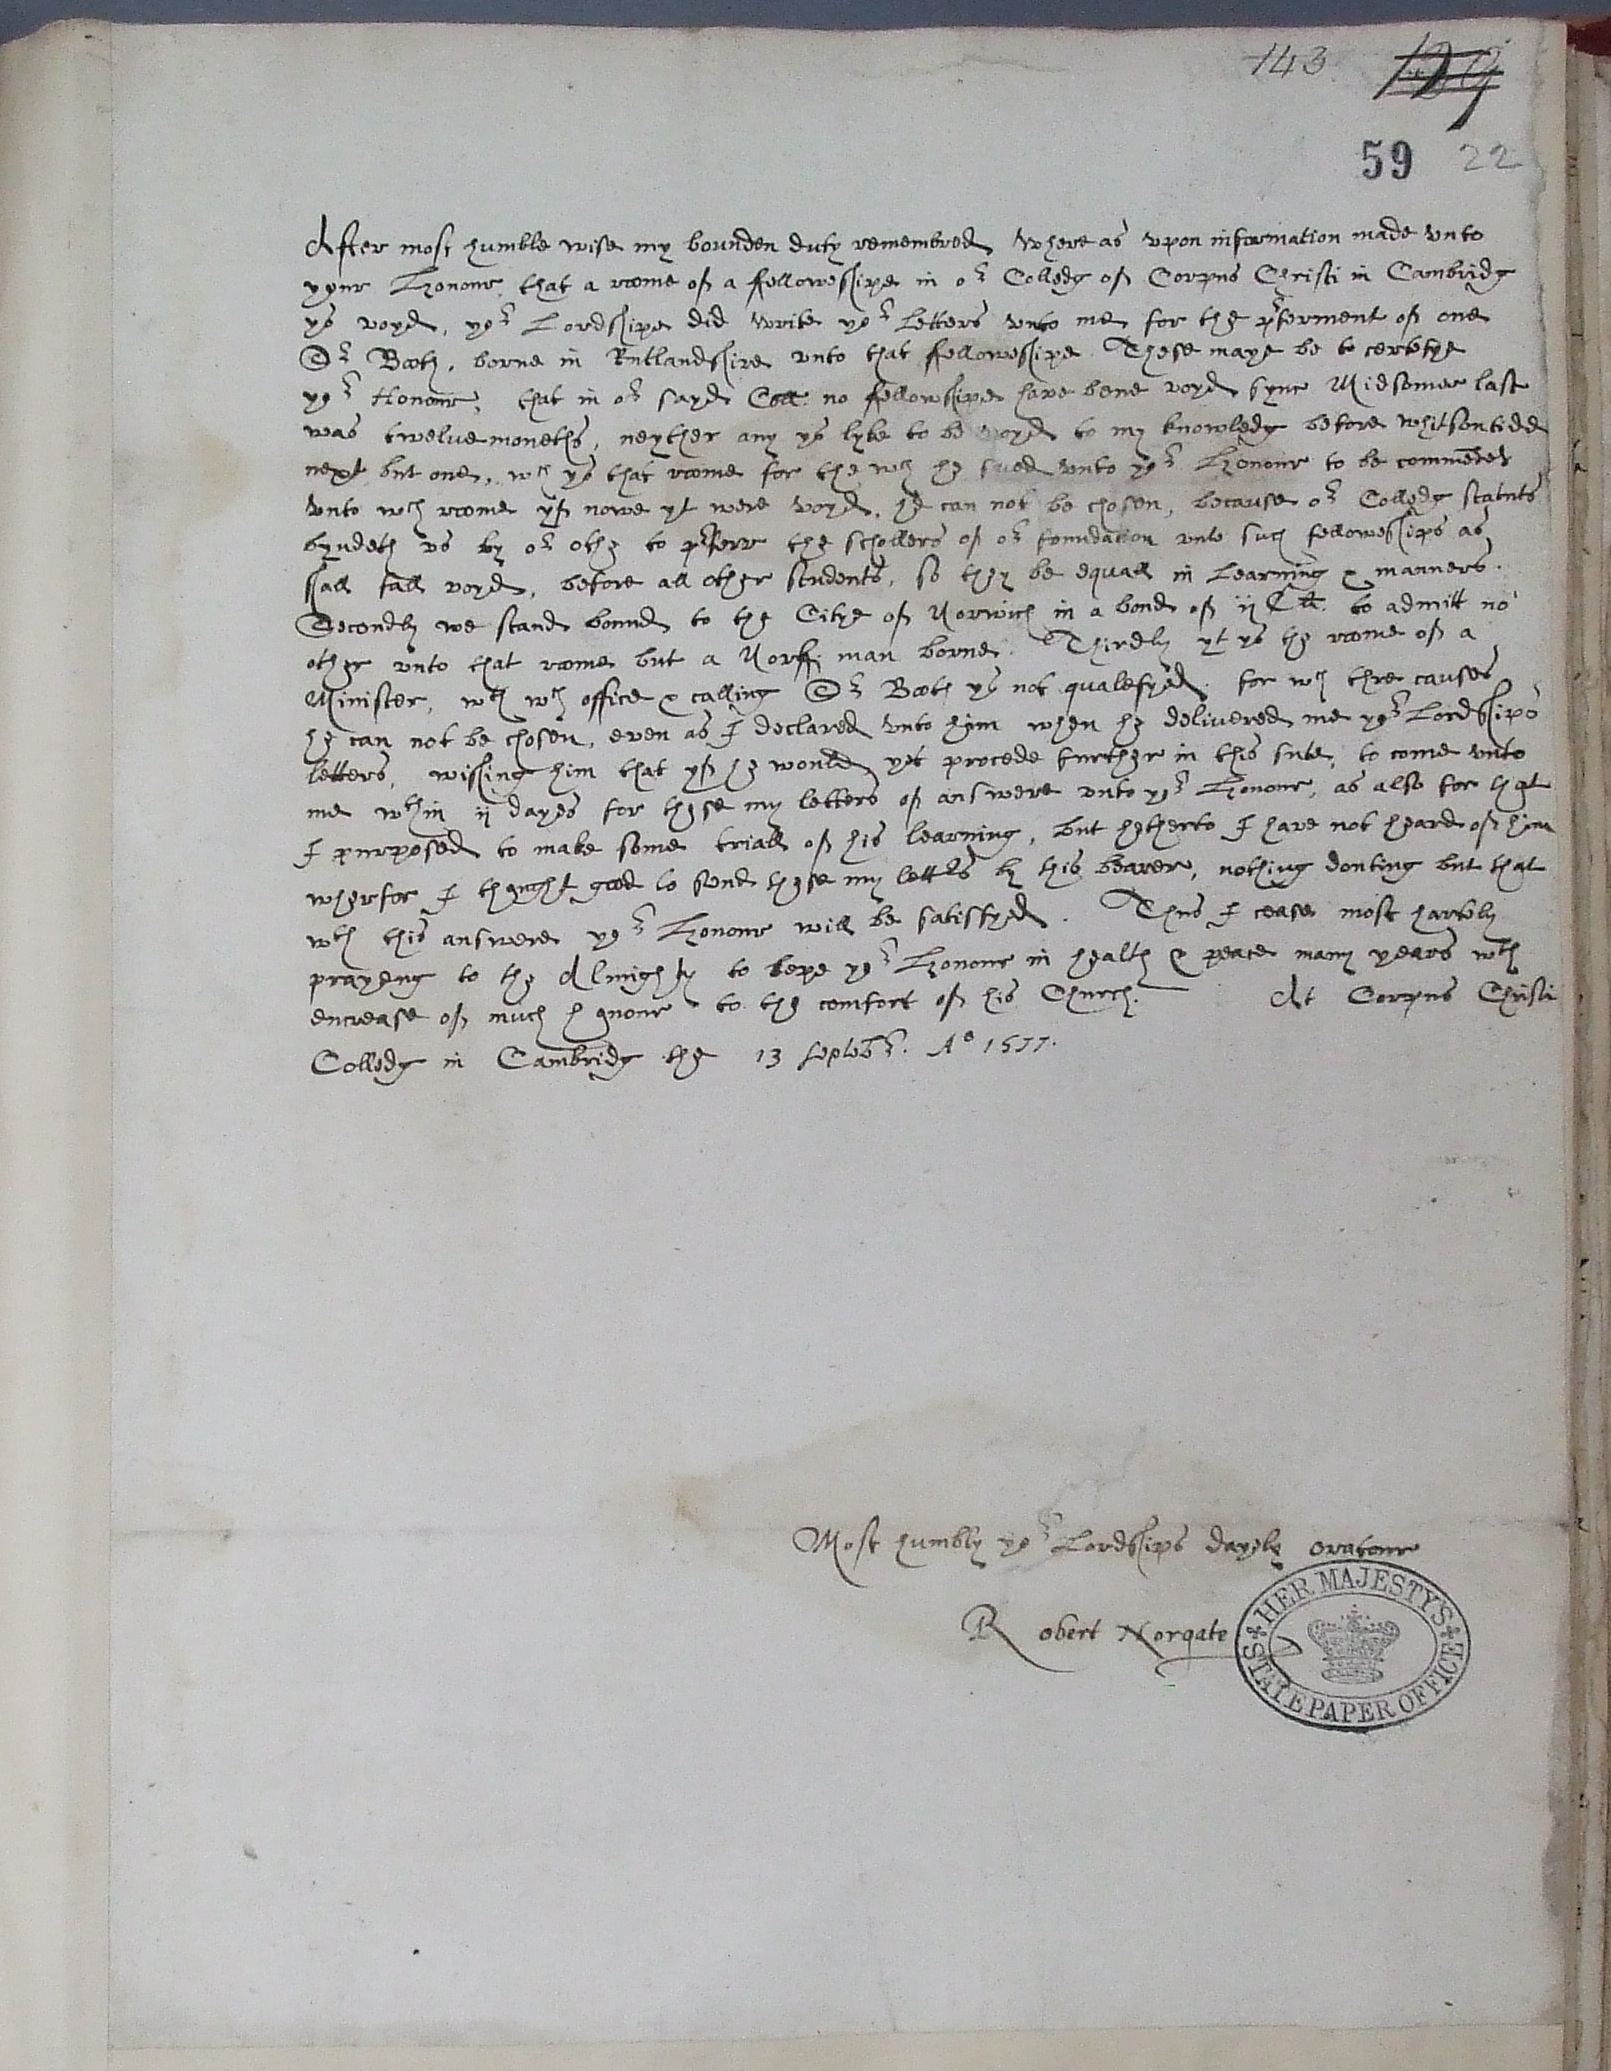 143 129
59 22
After most humble wise my bounden duty remembred, Where as vpon information made vnto
your Honour, that a roome of a ffelloweshipe in or Colledg of Corpus Christi in Cambridg
ys voyd, yor Lordshipe did write yor letters vnto me for the prferment of one
Sr Both, borne in Rutlandshire vnto that ffelloweshipe. These maye be to certefye
yor Honour, that in or sayd Coll. no ffellowshipe have bene voyd sync Midsomer last
was twelue moneths, neyther any ys lyke to be voyd to my knowledg before whitsontide
next but one, wch ys that roome for the wch he sued vnto yor Honour to be
vnto wch roome yf nowe yt were voyd, he can not be chosen, because or Colledg statuts
byndeth vs by or othe to prferr the schollers of or foundation vnto such felloweships as
shall fall voyd, before all other students, so they be equall in learning & manners.
Secondly we stand bound to the Citye of Norwich in a bond of ij C li. to admitt no
other vnto that roome but a Norff. man borne. Thirdly yt ys the roome of a
Minister, wth wch office & calling Sr Both ys not qualefyed. for wch thre causes
he can not be chosen, even as I declared vnto him when he delivered me yor Lordships
letters, wishing him that yf he would yet procede further in this sute, to come vnto
me wthin ij dayes for these my letters of answere vnto yor Honour, as also for that
I purposed to make some triall of his learning, but hetherto I have not heard of him
wherfor I thought good to send these my letters by this bearer, nothing douting but that
wth this answere yor Honour will be satisfyed. Thus I cease most hartely
prayeng to the Almighty to kepe yor Honour in health & peace many years wth
encrease of much honour to the comfort of his Church. At Corpus Christi
Colledg in Cambridg the 13 Septebr. Ao 1577.
Most humbly yor Lordships dayely oratour
Robert Norgate
HER MAJESTY'S STATE PAPER OFFICE